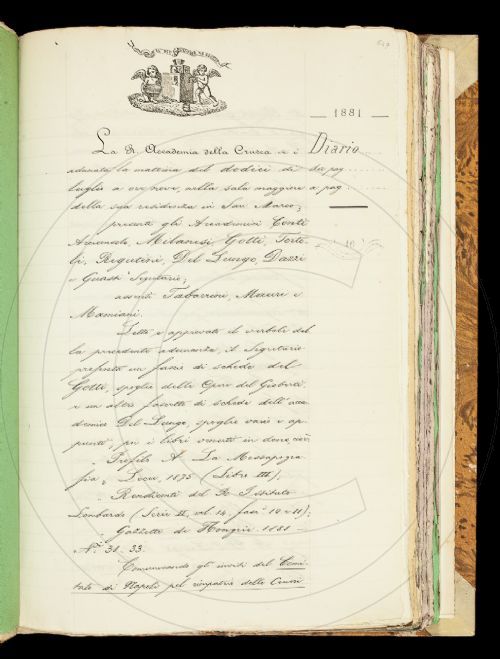 1881
Diario
da pag
a pag
La R. Accademia della Crusca si è
adunata la mattina del dodici di
luglio a ore nove, nella sala maggiore
della sua residenza in San Marco;
presenti gli Accademici Conti
Arciconsolo, Milanesi, Gotti, Torto-
li, Rigutini, Del Lungo, Dazzi
e Guasti Segretario;
assenti Tabarrini, Mauri e
Mamiani.
Letto e approvato il verbale del
la precedente adunanza, il Segretario
presenta un fascio di schede del
Gotti, spoglio delle Opere del Gioberti,
e un altro fascetto di schede dell'acca
demico Del Lungo, spoglio vario e ap
punti, poi i libri venuti in dono, cioè
Profilo A. La Messapogra
fia; Lecce, 1875 (Libro III);
Rendiconti del R. Istituto
Lombardo (Serie II, vol. 14, fasc. 10 e 11);
Gazzette de Hongrie 1881 -
N.i 31-33.
Comunicando gli inviti del Comi
tato di Napoli pel rimpatrio delle Ceneri